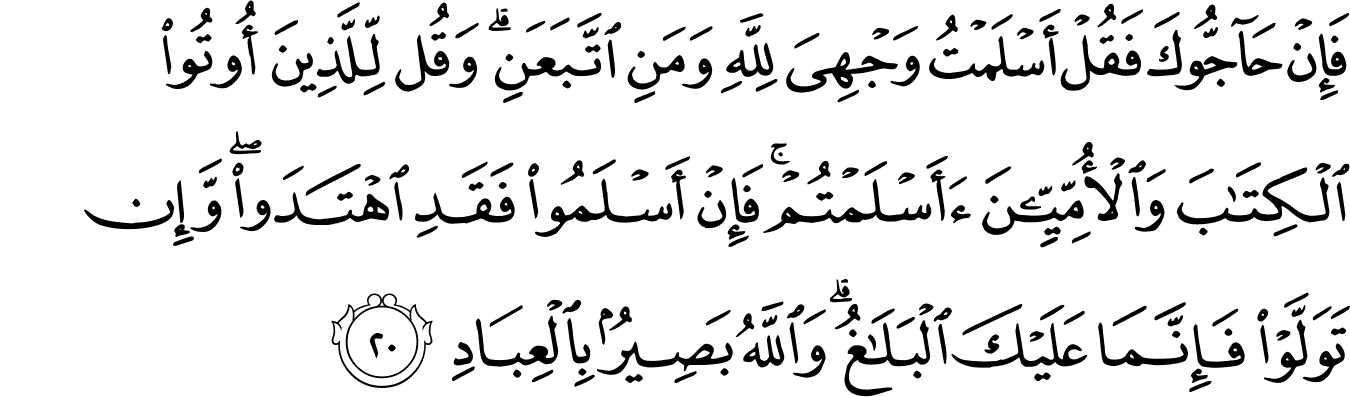 فَإِنۡ حَآجُّوكَ فَقُلۡ أَسۡلَمۡتُ وَجۡهِىَ لِلَّهِ وَمَنِ ٱتَّبَعَنِۗ وَقُل لِّلَّذِينَ أُوتُوا۟
ٱلۡكِتَـٰبَ وَٱلۡأُمِّيِّـۧنَ ءَأَسۡلَمۡتُمۡۚ فَإِنۡ أَسۡلَمُوا۟ فَقَدِ ٱهۡتَدَوا۟ۖ وَّإِن
تَوَلَّوۡا۟ فَإِنَّمَا عَلَيۡكَ ٱلۡبَلَـٰغُۗ وَٱللَّهُ بَصِيرُۢ بِٱلۡعِبَادِ ٢٠